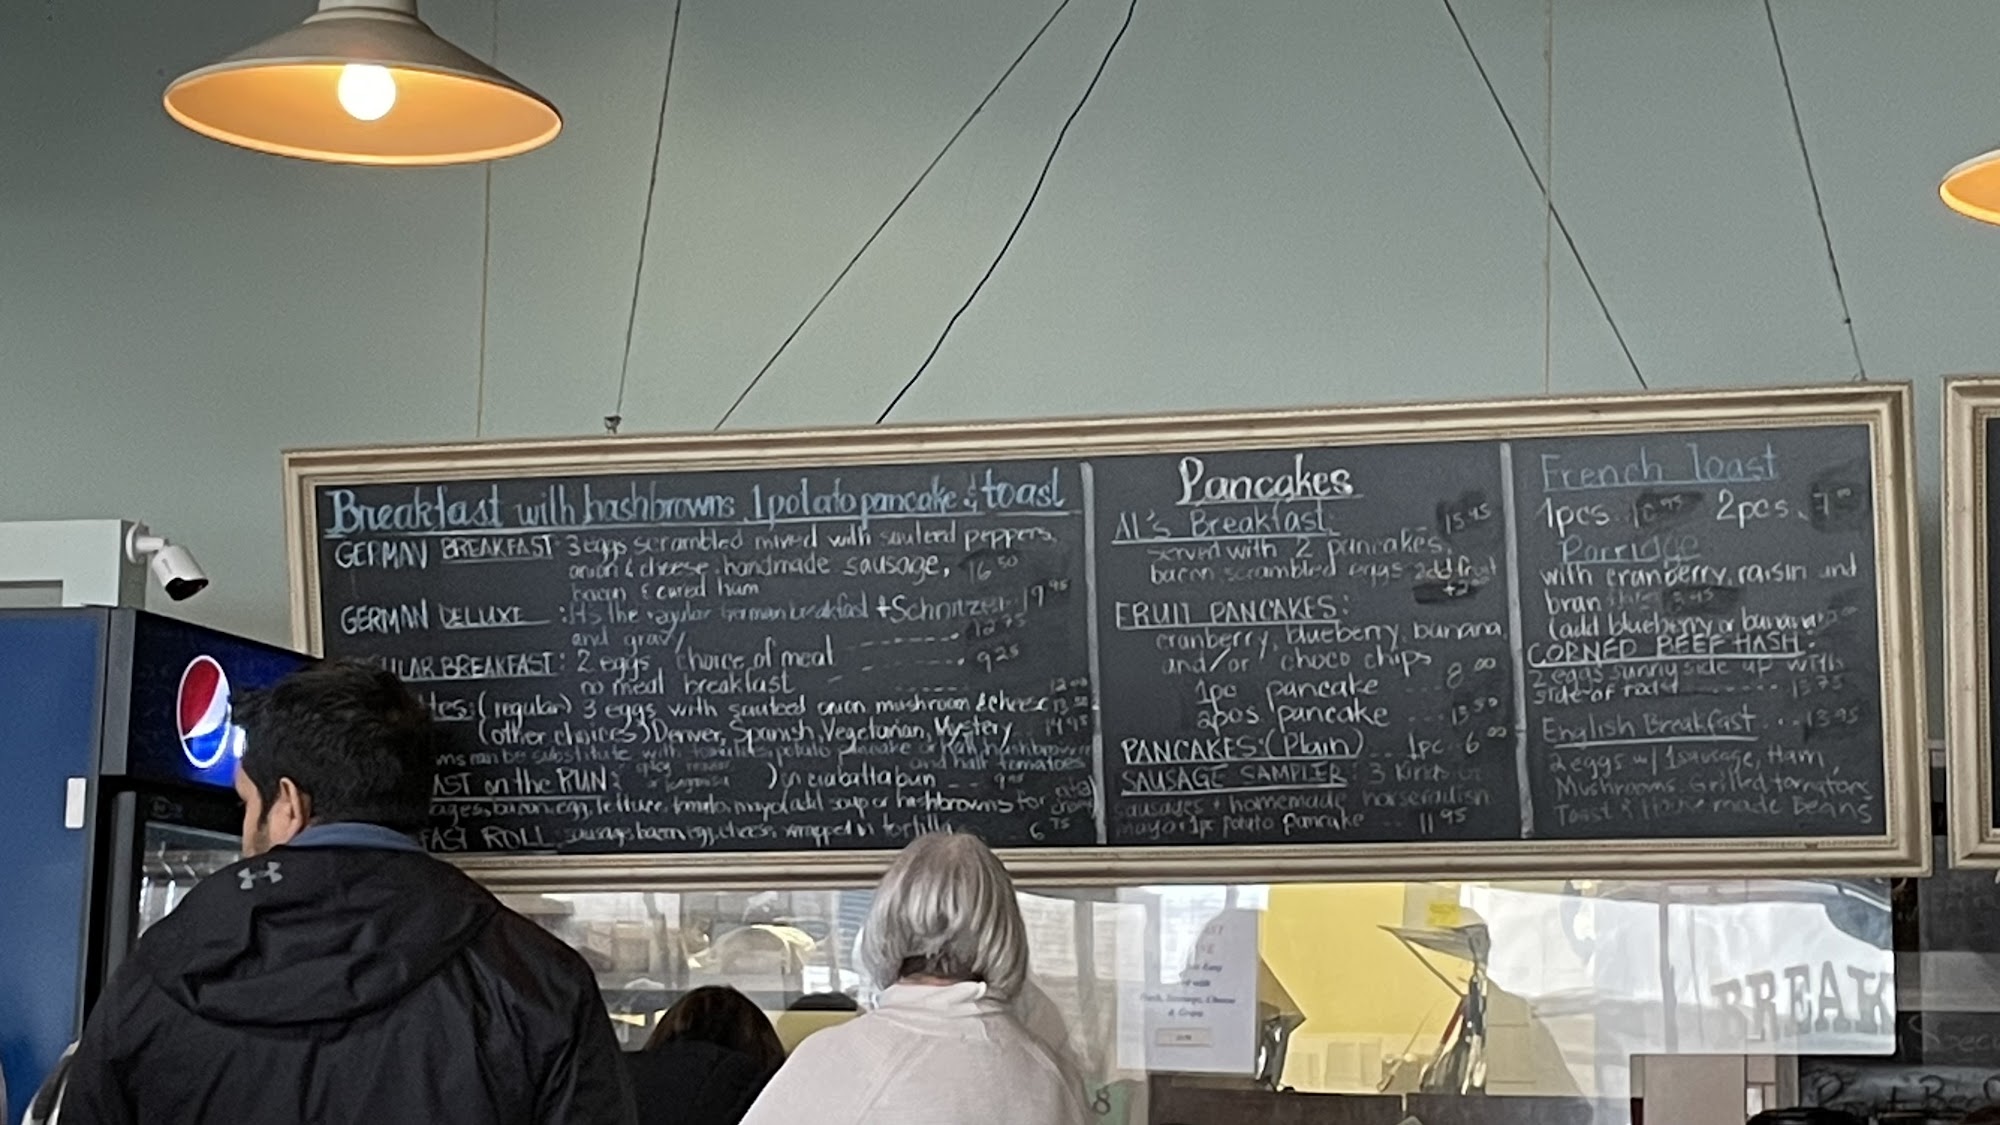 Breakfast with hashbrowns, 1 potato pancake & toast
GERMAN BREAKFAST: 3 eggs scrambled mixed with sauteed peppers,
onion & cheese, handmade sausage, 16 50
bacon & cured ham
GERMAN DELUXE: It's the regular German breakfast + Schnitzel 19 95
and gravy
ULAR BREAKFAST: 2 eggs, choice of meal 12 75
no meal breakfast 9 25
(regular) 3 eggs with sauteed onion mushroom & cheese
(other choices) Denver, Spanish, Vegetarian, Mystery 14 95
ms can be substitute with tomatoes, potato pancake or half hashbrowns
and half tomatoes
AST on the RUN: on ciabatta bun
ages, bacon, egg, lettuce, tomato, mayo (add soup or hashbrowns for
FAST ROLL sausage, bacon, egg, cheese, wrapped in tortilla 6 75
Pancakes
AL's Breakfast 15 95
served with 2 pancakes,
bacon, scrambled eggs add fruit
+2
FRUIT PANCAKES:
cranberry, blueberry, banana,
and/or choco chips
1pc pancake 8 00
2pcs. pancake 13 50
PANCAKES: (Plain) 1pc 6 00
SAUSAGE SAMPLER: 3 kinds of
sausages + homemade horseradish
mayo + 1pc potato pancake 11 95
French Toast
1pcs. 2pcs.
Porridge
with cranberry, raisin and
bran
(add blueberry or banana
CORNED BEEF HASH:
2 eggs sunny side up with
side of toast 13 75
English Breakfast 13 95
2 eggs w/ 1 sausage, Ham,
Mushrooms, Grilled tomatoes
Toast & House made beans
BREAK
8